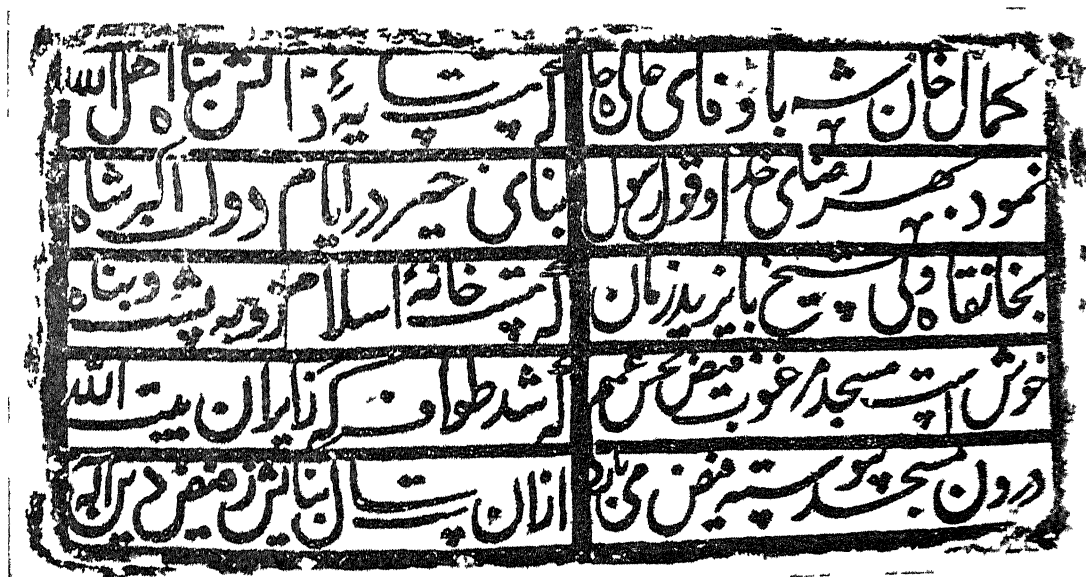 کمال خان شه با وفای عالی جاه که هست ذاتش بناه اهل الله
نمود بهر رضای خدا و قول رسول بنای خیر در ایام دولت اکبر شاه
بخانقاه ولی شیخ بایزید زمان که هست خانهٔ اسلام زو به پشت و بناه
خوش است مسجد مرغوب فیض بخش که شد طواف که زایران بیت الله
درون مسجد پیوسته فیض می بارد ازان سال بنایش ز فیض